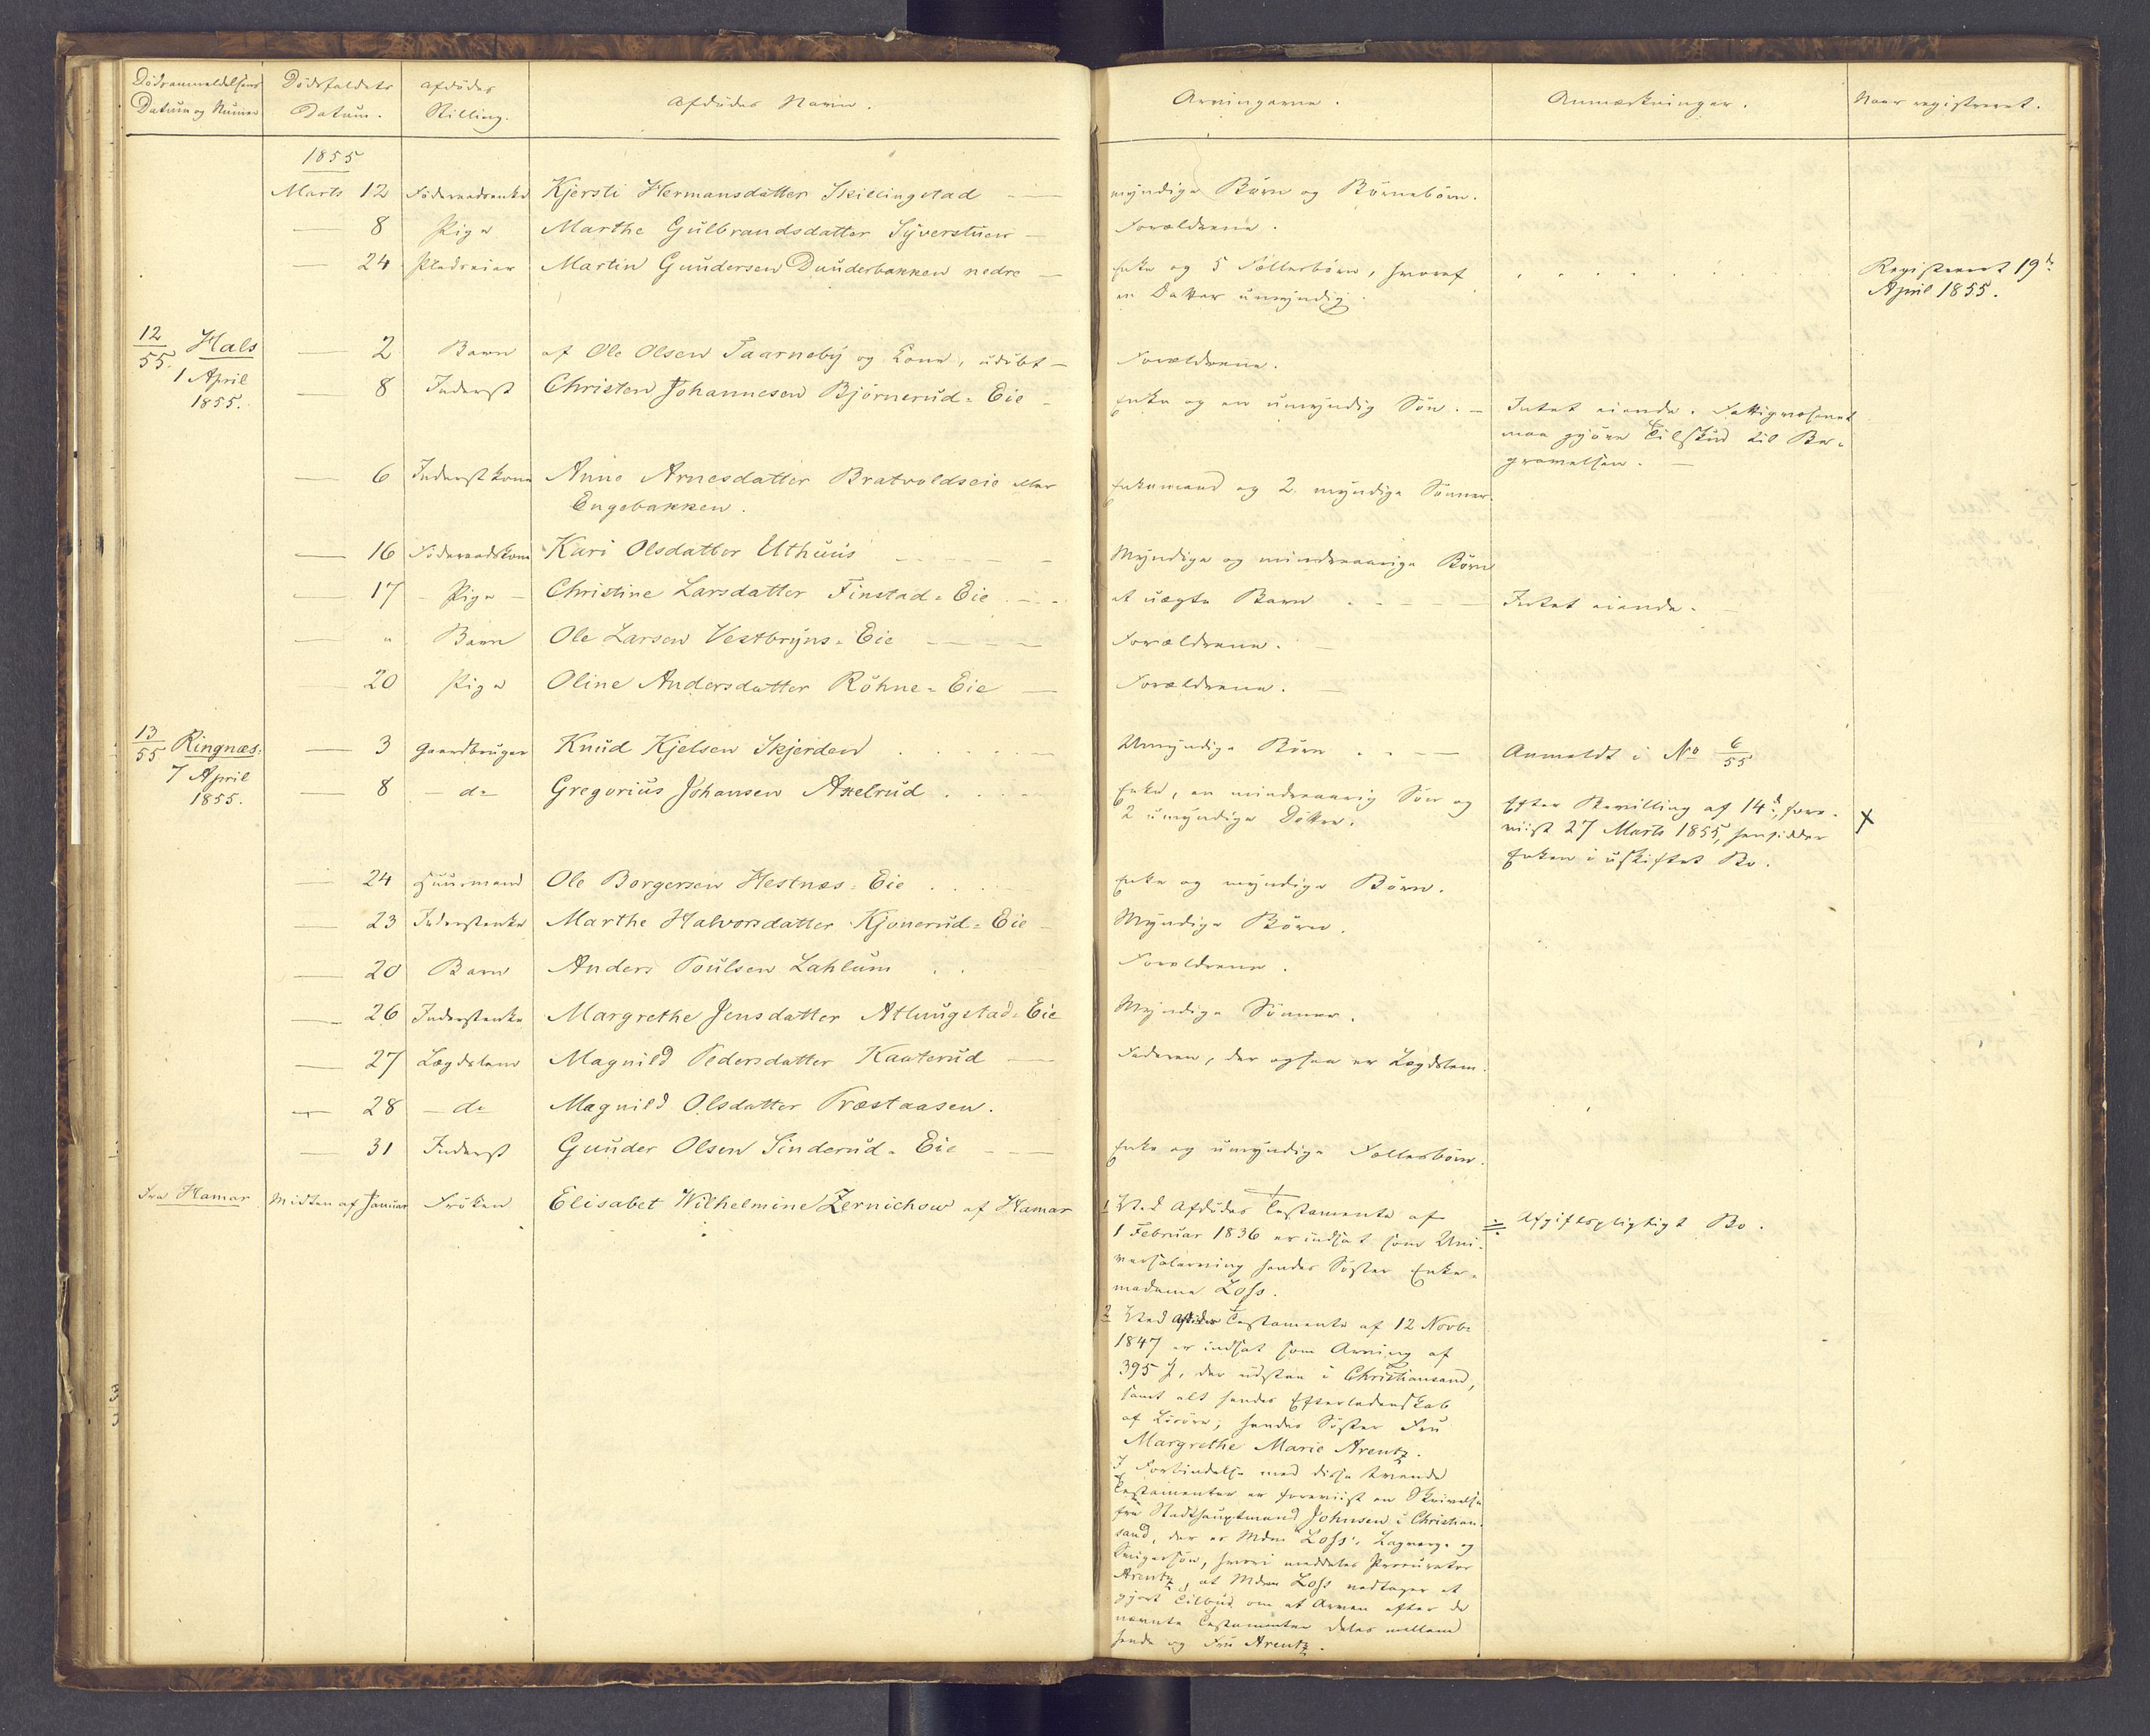 Dödsanmeldelsens Datum og Numer
Dödsfaldets Datum.
Afdödes Stilling.
Afdödes Navn.
Arvingerne.
Anmærkninger.
Naar registreret.
1855
Marts 12 Föderaadsenke Kjersti Hermansdatter Skillingstad — myndige Börn og Börnebörn.
— 8 Pige Marthe Gulbrandsdatter Syverstuen — Forældrene.
— 24 Pladseier Martin Gundersen Dunderbakken nedre — Enke og 5 Fællesbörn, hvoraf Registreret 19de
en Datter umyndig. April 1855.
12/55. Hals — 2 Barn af Ole Olsen Taarneby og Kone, udöbt — Forældrene.
1 April
1855. — 8 Inderst Christen Johannesen Björnerud-Eie — Enke og en umyndig Sön. — Intet eiende. Fattigvæsenet
maa gjöre Tilskud til Be-
gravelsen. —
— 6 Inderstkone Anne Arnesdatter Bratvoldseie eller Enkemand og 2 myndige Sönner.
Engebakken.
— 16 Föderaadskone Kari Olsdatter Uthuus — Myndige og mindreaarige Börn
— 17 Pige Christine Larsdatter Finstad-Eie — et uægte Barn — Intet eiende.
— " Barn Ole Larsen Vestbryns-Eie — Forældrene.
— 20 Pige Oline Andersdatter Röhne-Eie — Forældrene.
13/55 Ringnæs. — 3 Gaardbruger Knud Kjelsen Skjerden . . . Umyndige Börn — Anmeldt i No 6/55
7 April
1855. — 8 — do Gregorius Johansen Axelrud . . . Enke, en mindreaarig Sön og Efter Bevilling af 14de, fore- x
2 umyndige Döttre. viist 27 Marts 1855, hensidder
Enken i uskiftet Bo.
— 24 Huusmand Ole Borgersen Hestnæs-Eie . . . Enke og myndige Börn.
— 23 Inderstenke Marthe Halvorsdatter Kjonerud-Eie — Myndige Börn.
— 20 Barn Anders Poulsen Lahlum . . Forældrene.
— 26 Inderstenke Margrethe Jensdatter Atlungstad-Eie Myndige Sönner.
— 27 Lægdslem Magnild Pedersdatter Kaaterud — Faderen, der ogsaa er Lægdslem.
— 28 — do Magnild Olsdatter Præstaasen.
— 31 Inderst Gunder Olsen Sinderud-Eie — Enke og umyndige Fællesbörn.
Fra Hamar Midten af Januar Fröken Elisabet Wilhelmine Zernichow af Hamar 1 Ved Afdödes Testamente af ÷ Afgiftspligtigt Bo.
1 Februar 1836 er indsat som Uni-
versalarving hendes Söster Enke-
madame Loss.
2 Ved Afdödes Testamente af 12 Novbr
1847 er indsat som Arving af
395 , der udstaa i Christiansand,
samt alt hendes Efterladenskab
af Lösöre, hendes Söster Fru
Margrethe Marie Arentz.
I Forbindelse med disse tvende
Testamenter er foreviist en Skrivelse
fra Stadshauptmand Johnsen i Christian-
sand, der er Mdm Loss's Laugværge og
Svigersön, hvori meddeles Procurator
Arentz, at Mdm Loss vedtager et
gjort Tilbud om at Arven efter de
nævnte Testamenter deles mellem
hende og Fru Arentz.